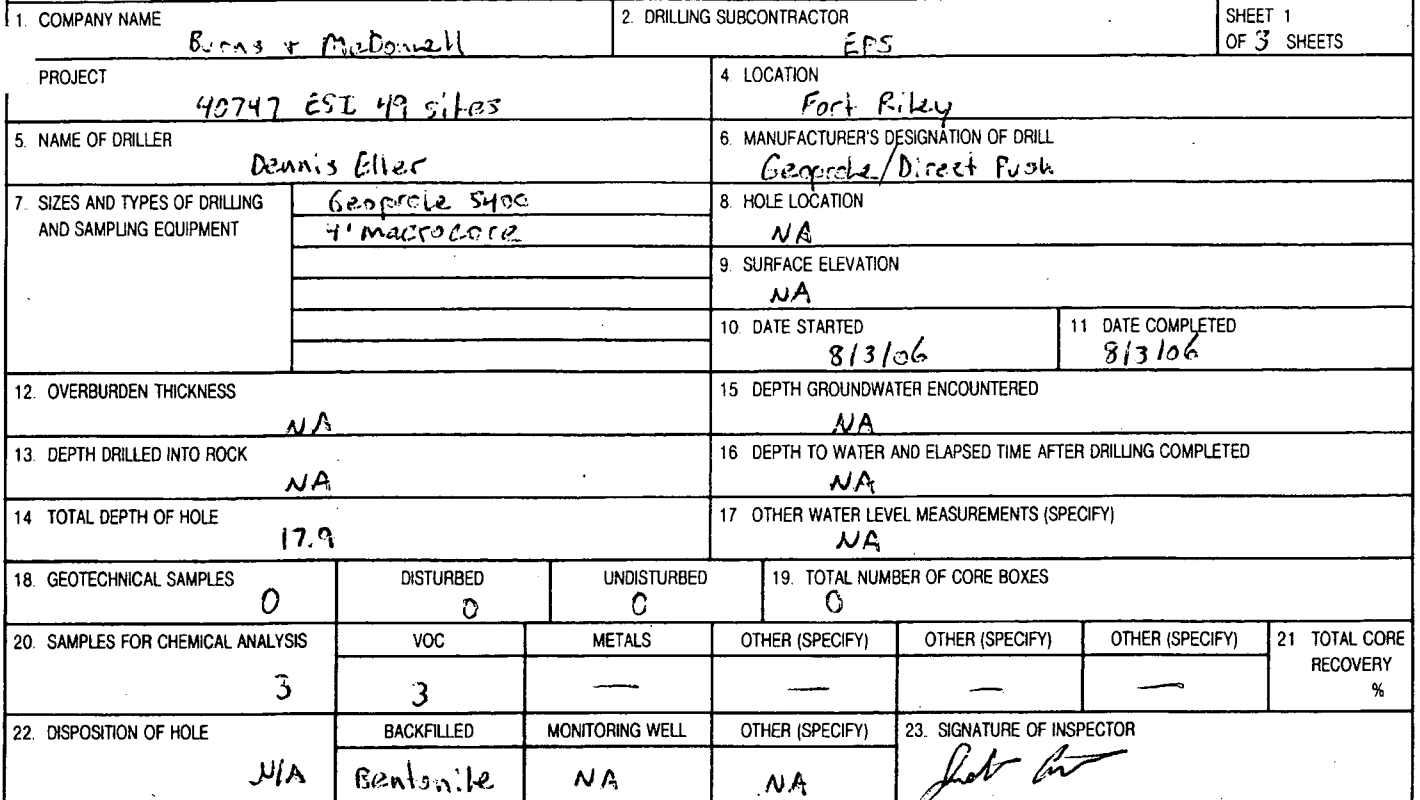 1. COMPANY NAME
Burns & McDonnell
2. DRILLING SUBCONTRACTOR
EPS
SHEET 1
OF 3 SHEETS
PROJECT
40747 ESI 49 sites
4. LOCATION
Fort Riley
5. NAME OF DRILLER
Dennis Eller
6. MANUFACTURER'S DESIGNATION OF DRILL
Geoprobe/Direct Push
7. SIZES AND TYPES OF DRILLING
AND SAMPLING EQUIPMENT
Geoprobe 5400
4' macrocore
8. HOLE LOCATION
NA
9. SURFACE ELEVATION
NA
10. DATE STARTED
8/3/06
11 DATE COMPLETED
8/3/06
12. OVERBURDEN THICKNESS
NA
15 DEPTH GROUNDWATER ENCOUNTERED
NA
13. DEPTH DRILLED INTO ROCK
NA
16 DEPTH TO WATER AND ELAPSED TIME AFTER DRILLING COMPLETED
NA
14 TOTAL DEPTH OF HOLE
17.9
17 OTHER WATER LEVEL MEASUREMENTS (SPECIFY)
NA
18. GEOTECHNICAL SAMPLES
0
DISTURBED
0
UNDISTURBED
0
19. TOTAL NUMBER OF CORE BOXES
0
20. SAMPLES FOR CHEMICAL ANALYSIS
3
VOC
3
METALS
—
OTHER (SPECIFY)
—
OTHER (SPECIFY)
—
OTHER (SPECIFY)
—
21 TOTAL CORE
RECOVERY
%
22. DISPOSITION OF HOLE
N/A
BACKFILLED
Bentonite
MONITORING WELL
NA
OTHER (SPECIFY)
NA
23. SIGNATURE OF INSPECTOR